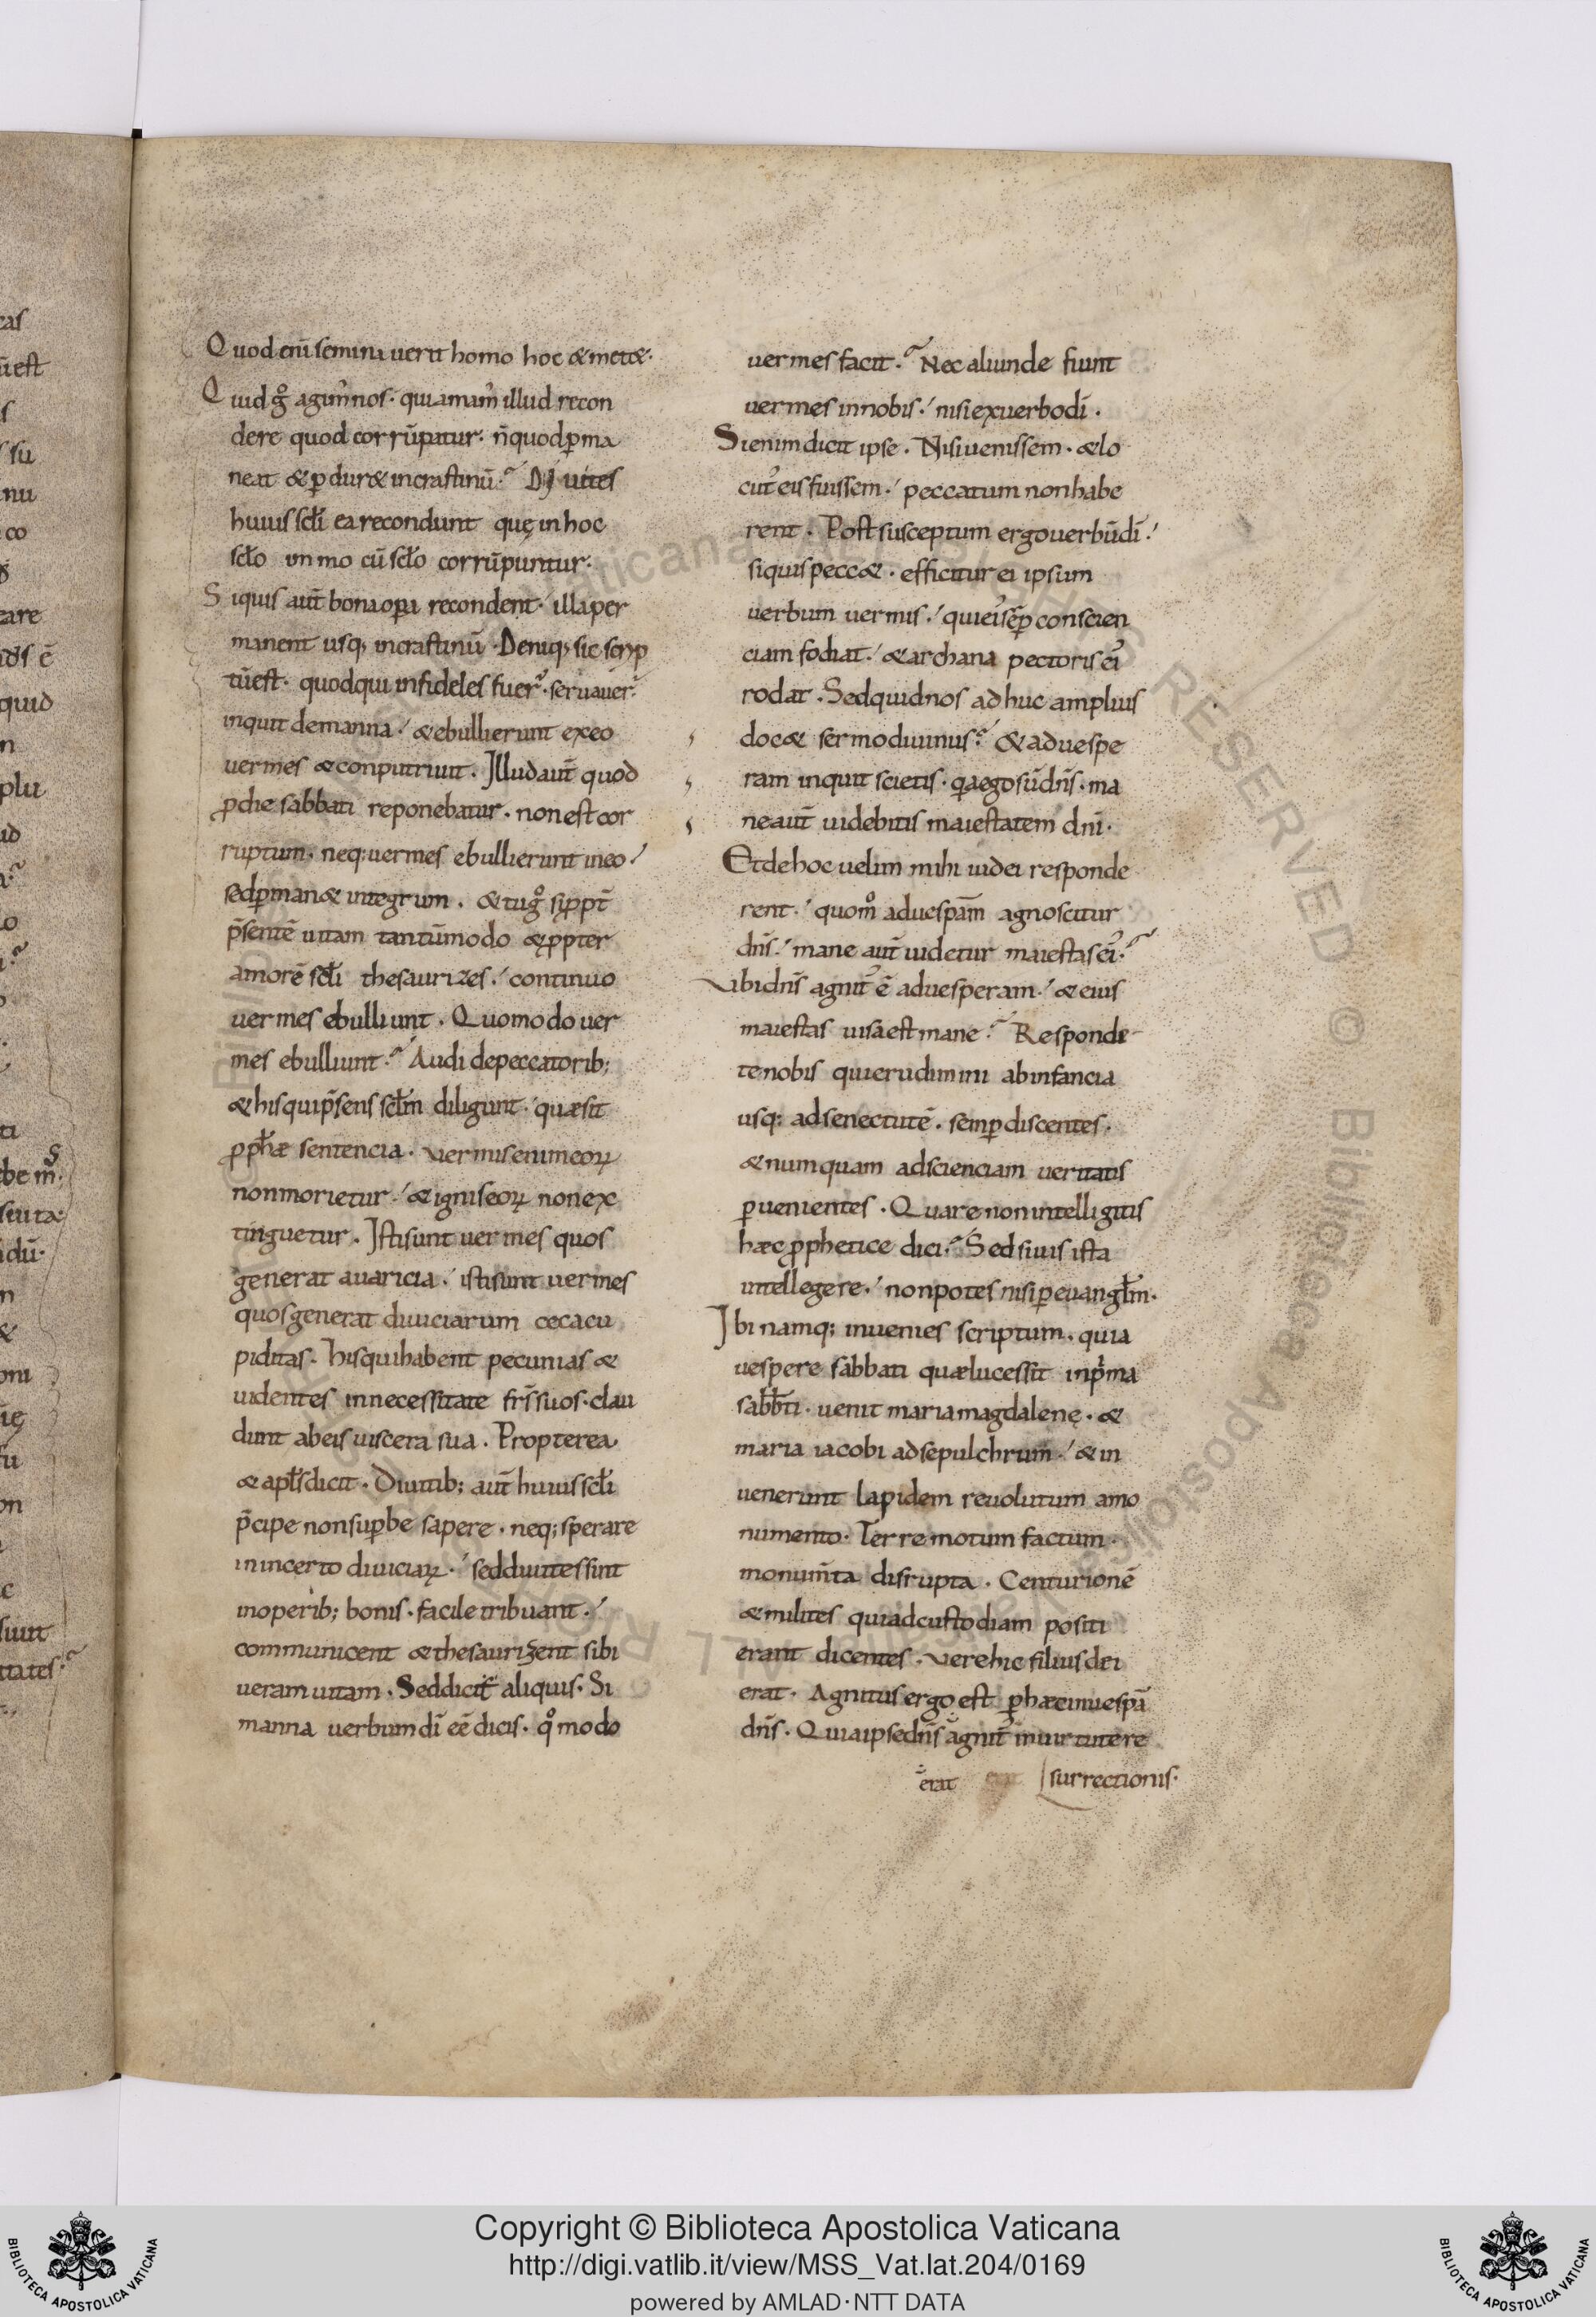 Quod enī seminauerit homo hoc & met&.
Quid gͦ agim᾽ nos. qui amam᾽ illud recon
dere quod corrūpatur. n̄ quod ꝑma
neat & ꝑdur& incrastinū. Diuites
huius scłi ea recondunt quę in hoc
scło immo cū scło corrūpuntur.
Siquis aut̄ bona oꝑa recondent. illa per
manent usq; incrastinū. Deniq; sic scrip
tū est. quod qui infideles fuer̄. seruauer̄.
inquit de manna. & ebullierunt ex eo
uermes & conputriuit. Illud aut̄ quod
ꝓ die sabbati reponebatur. non est cor
ruptum. neq; uermes ebullierunt in eo.
sed ꝑman& integrum. & tu gͦ si ꝓpt̄
p̄sentē uitam tantūmodo & ꝓpter
amorē scłi thesaurizes. continuo
uermes ebulliunt. Quomodo uer
mes ebulliunt. Audi de peccatorib;
& his qui p̄sens scłm diligunt. quæ sit
ꝓph&æ sentencia. Vermis enim eoꝝ
non morietur. & ignis eoꝝ non ex
tinguetur. Isti sunt uermes quos
generat auaricia. isti sunt uermes
quos generat diuiciarum ceca cu
piditas. his qui habent pecunias &
uidentes in necessitate fr̄s suos. clau
dunt ab eis uiscera sua. Propterea
& apłs dicit. Diuitib; aut̄ huius scłi
p̄cipe non suꝑbe sapere. neq; sperare
in incerto diuiciaꝝ. sed diuites sint
in operib; bonis. facile tribuant.
communicent & thesaurizent sibi
ueram uitam. Sed dicit aliquis. Si
manna uerbum dī eē dicis. qͦmodo
uermes facit. Nec aliunde fiunt
uermes in nobis. nisi ex uerbo dī.
Si enim dicit ipse. Nisi uenissem. & lo
cut᾽ eis fuissem. peccatum non habe
rent. Post susceptum ergo uerbū dī.
siquis pecc&. efficitur ei ipsum
uerbum uermis. qui ei᾽ sēꝑ conscien
ciam fodiat. & archana pectoris ei᾽
rodat. Sed quid nos adhuc amplius
doc& sermo diuinus. & ad uespe
ram inquit scietis. qa ego sū dn̄s. ma
ne aut̄ uidebitis maiestatem dnī.
Et de hoc uelim mihi iudei responde
rent. quomͦ ad uespām agnoscitur
dn̄s. mane aut̄ uidetur maiestas ei᾽.
Vbi dn̄s agnit᾽ ē ad uesperam. & eius
maiestas uisa est mane. Responde
te nobis qui erudimini ab infancia
usq; ad senectutē. semꝑ discentes.
& numquam ad scienciam ueritatis
ꝑuenientes. Quare non intelligitis
hæc ꝓphetice dici. Sed si uis ista
intellegere. non potes nisi ꝑ euangłm.
Ibi namq; inuenies scriptum. quia
uespere sabbati quæ lucessit in pⁱma
sabb̄ti. uenit maria magdalenę. &
maria iacobi ad sepulchrum. & in
uenerunt lapidem reuolutum a mo
numento. Terre motum factum.
monum̄ta disrupta. Centurionē
& milites qui ad custodiam positi
erant dicentes. Vere hic filius dei
erat. Agnitus ergo est ꝑ hæc in uespā
dn̄s. Quia ipse dn̄s agnit᾽ in uirtute re
erat surrectionis.
Copyright © Biblioteca Apostolica Vaticana
http://digi.vatlib.it/view/MSS_Vat.lat.204/0169
powered by AMLAD·NTT DATA
BIBLIOTECA APOSTOLICA VATICANA
BIBLIOTECA APOSTOLICA VATICANA